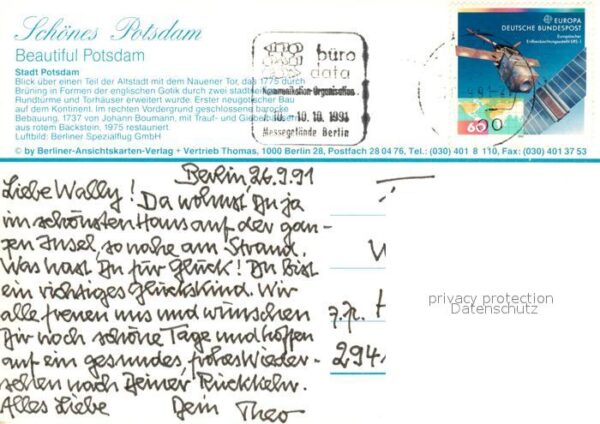 Schönes Potsdam
Beautiful Potsdam
Stadt Potsdam
Blick über einen Teil der Altstadt mit dem Nauener Tor, das 1775 durch
Brüning in Formen der englischen Gotik durch zwei stadtseitige
Rundtürme und Torhäuser erweitert wurde. Erster neugotischer Bau
auf dem Kontinent. Im rechten Vordergrund geschlossene barocke
Bebauung, 1737 von Johann Boumann, mit Trauf- und Giebelhäusern
aus rotem Backstein, 1975 restauriert
Luftbild: Berliner Spezialflug GmbH
büro
data
Kommunikation-Organisation
10. 10. 1991
Messegelände Berlin
EUROPA
DEUTSCHE BUNDESPOST
Europäischer
Erdbeobachtungssatellit ERS-1
60
© by Berliner-Ansichtskarten-Verlag + Vertrieb Thomas, 1000 Berlin 28, Postfach 28 04 76, Tel.: (030) 401 8 110, Fax: (030) 401 37 53
Berlin, 26.9.91
Liebe Wally! Da wohnst Du ja
im schönsten Haus auf der gan-
zen Insel, so nahe am Strand.
Was hast Du für Glück! Du bist
ein richtiges Glückskind. Wir
alle freuen uns und wünschen
Dir noch schöne Tage und hoffen
auf ein gesundes, frohes Wieder-
sehen nach Deiner Rückkehr.
Alles Liebe Dein Theo
z.Zt. H
294
privacy protection
Datenschutz